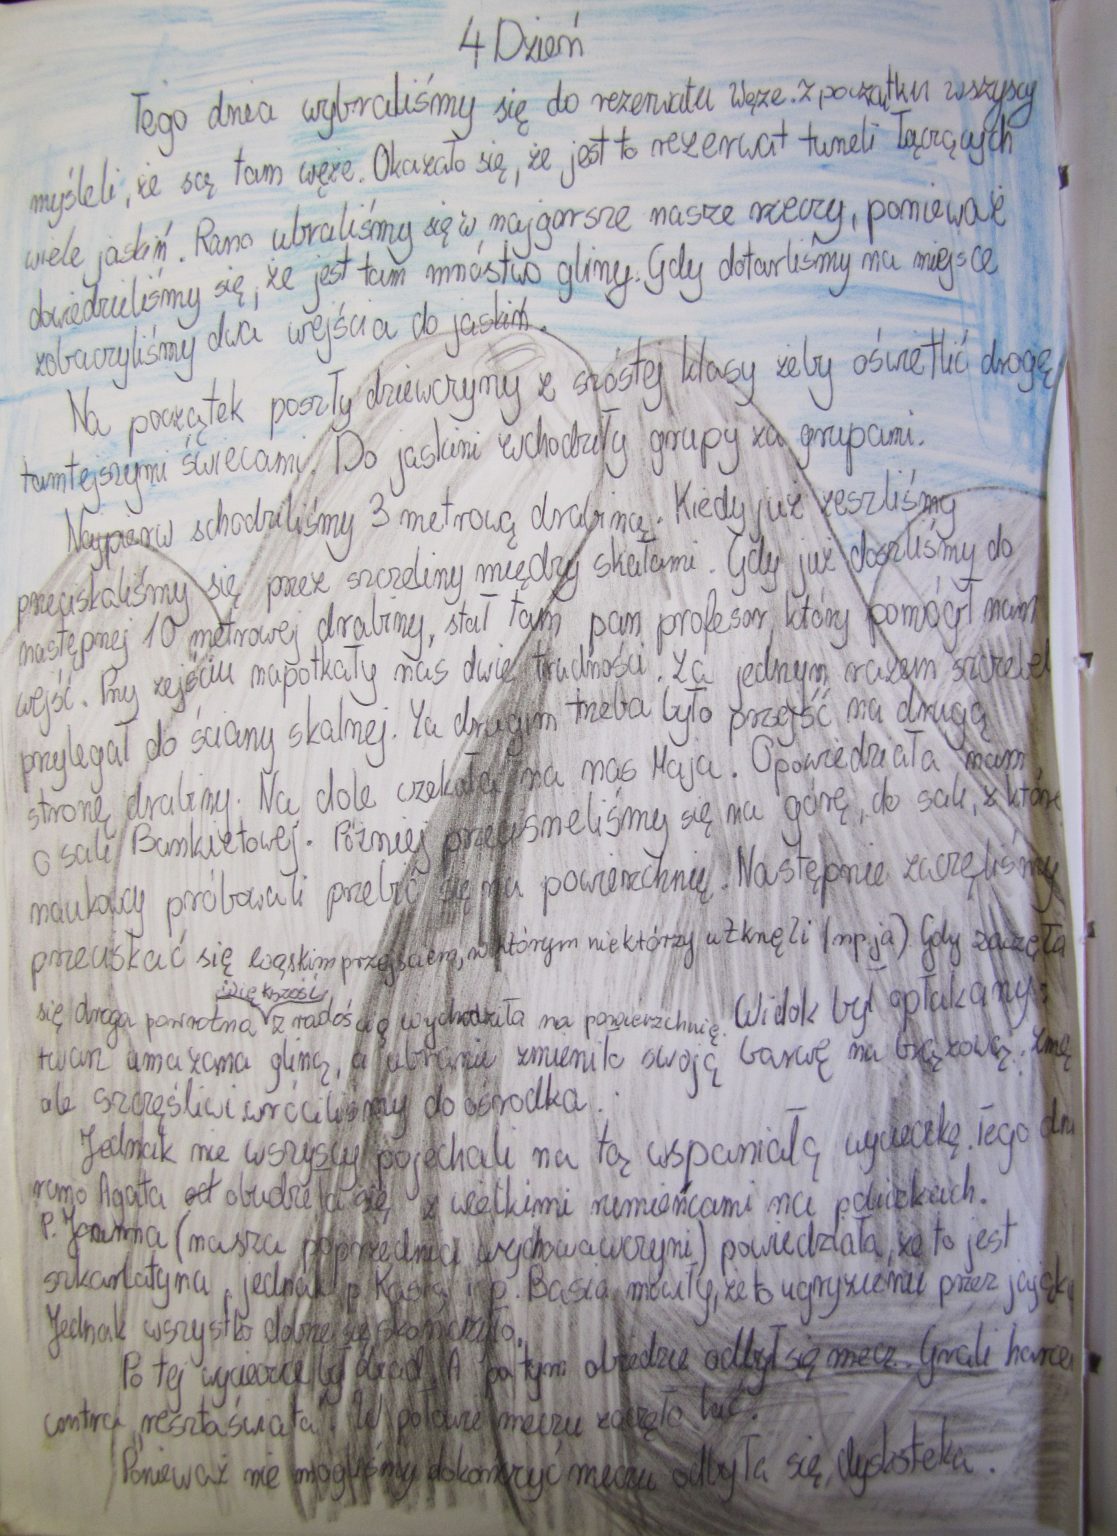 4 Dzień
Tego dnia wybraliśmy się do rezerwatu Węże. Z początku wszyscy
myśleli, że są tam węże. Okazało się, że jest to rezerwat tuneli łączących
wiele jaskiń. Rano ubraliśmy się w najgorsze nasze rzeczy, ponieważ
dowiedzieliśmy się, że jest tam mnóstwo gliny. Gdy dotarliśmy na miejsce
zobaczyliśmy dwa wejścia do jaskiń.
Na początek poszły dziewczyny z szóstej klasy żeby oświetlić drogę
tamtejszymi świecami. Do jaskini wchodziły grupy za grupami.
Najpierw schodziliśmy 3 metrową drabiną. Kiedy już zeszliśmy
przeciskaliśmy się przez szczeliny między skałami. Gdy już doszliśmy do
następnej 10 metrowej drabiny, stał tam pan profesor, który pomógł nam
wejść. Przy zejściu napotkały nas dwie trudności. Za jednym razem szczebel
przylegał do ściany skalnej. Za drugim trzeba było przejść na drugą
stronę drabiny. Na dole czekała na nas Maja. Opowiedziała nam
o sali Bankietowej. Później przecisneliśmy się na górę, do sali, z której
naukowcy próbowali przebić się na powierzchnię. Następnie zaczęliśmy
przeciskać się wąskim przejściem, w którym niektórzy utknęli (np. ja). Gdy zaczęła
się droga powrotna większość z radością wychodziła na powierzchnię. Widok był opłakany:
twarz umazana gliną, a ubranie zmieniło swoją barwę na brązową.
ale szczęśliwi wróciliśmy do ośrodka.
Jednak nie wszyscy pojechali na tą wspaniałą wycieczkę. Tego dnia
rano Agata obudziła się z wielkimi rumieńcami na policzkach.
P. Joanna (nasza poprzednia wychowawczyni) powiedziała, że to jest
szkarlatyna, jednak p. Kasia i p. Basia mówiły, że to ugryzienie przez
Jednak wszystko dobrze się skończyło.
Po tej wycieczce był obiad. A po tym obiedzie odbył się mecz. Grali
contra „reszta świata". W połowie meczu zaczęło lać.
Ponieważ nie mogliśmy dokończyć meczu odbyła się dyskoteka.